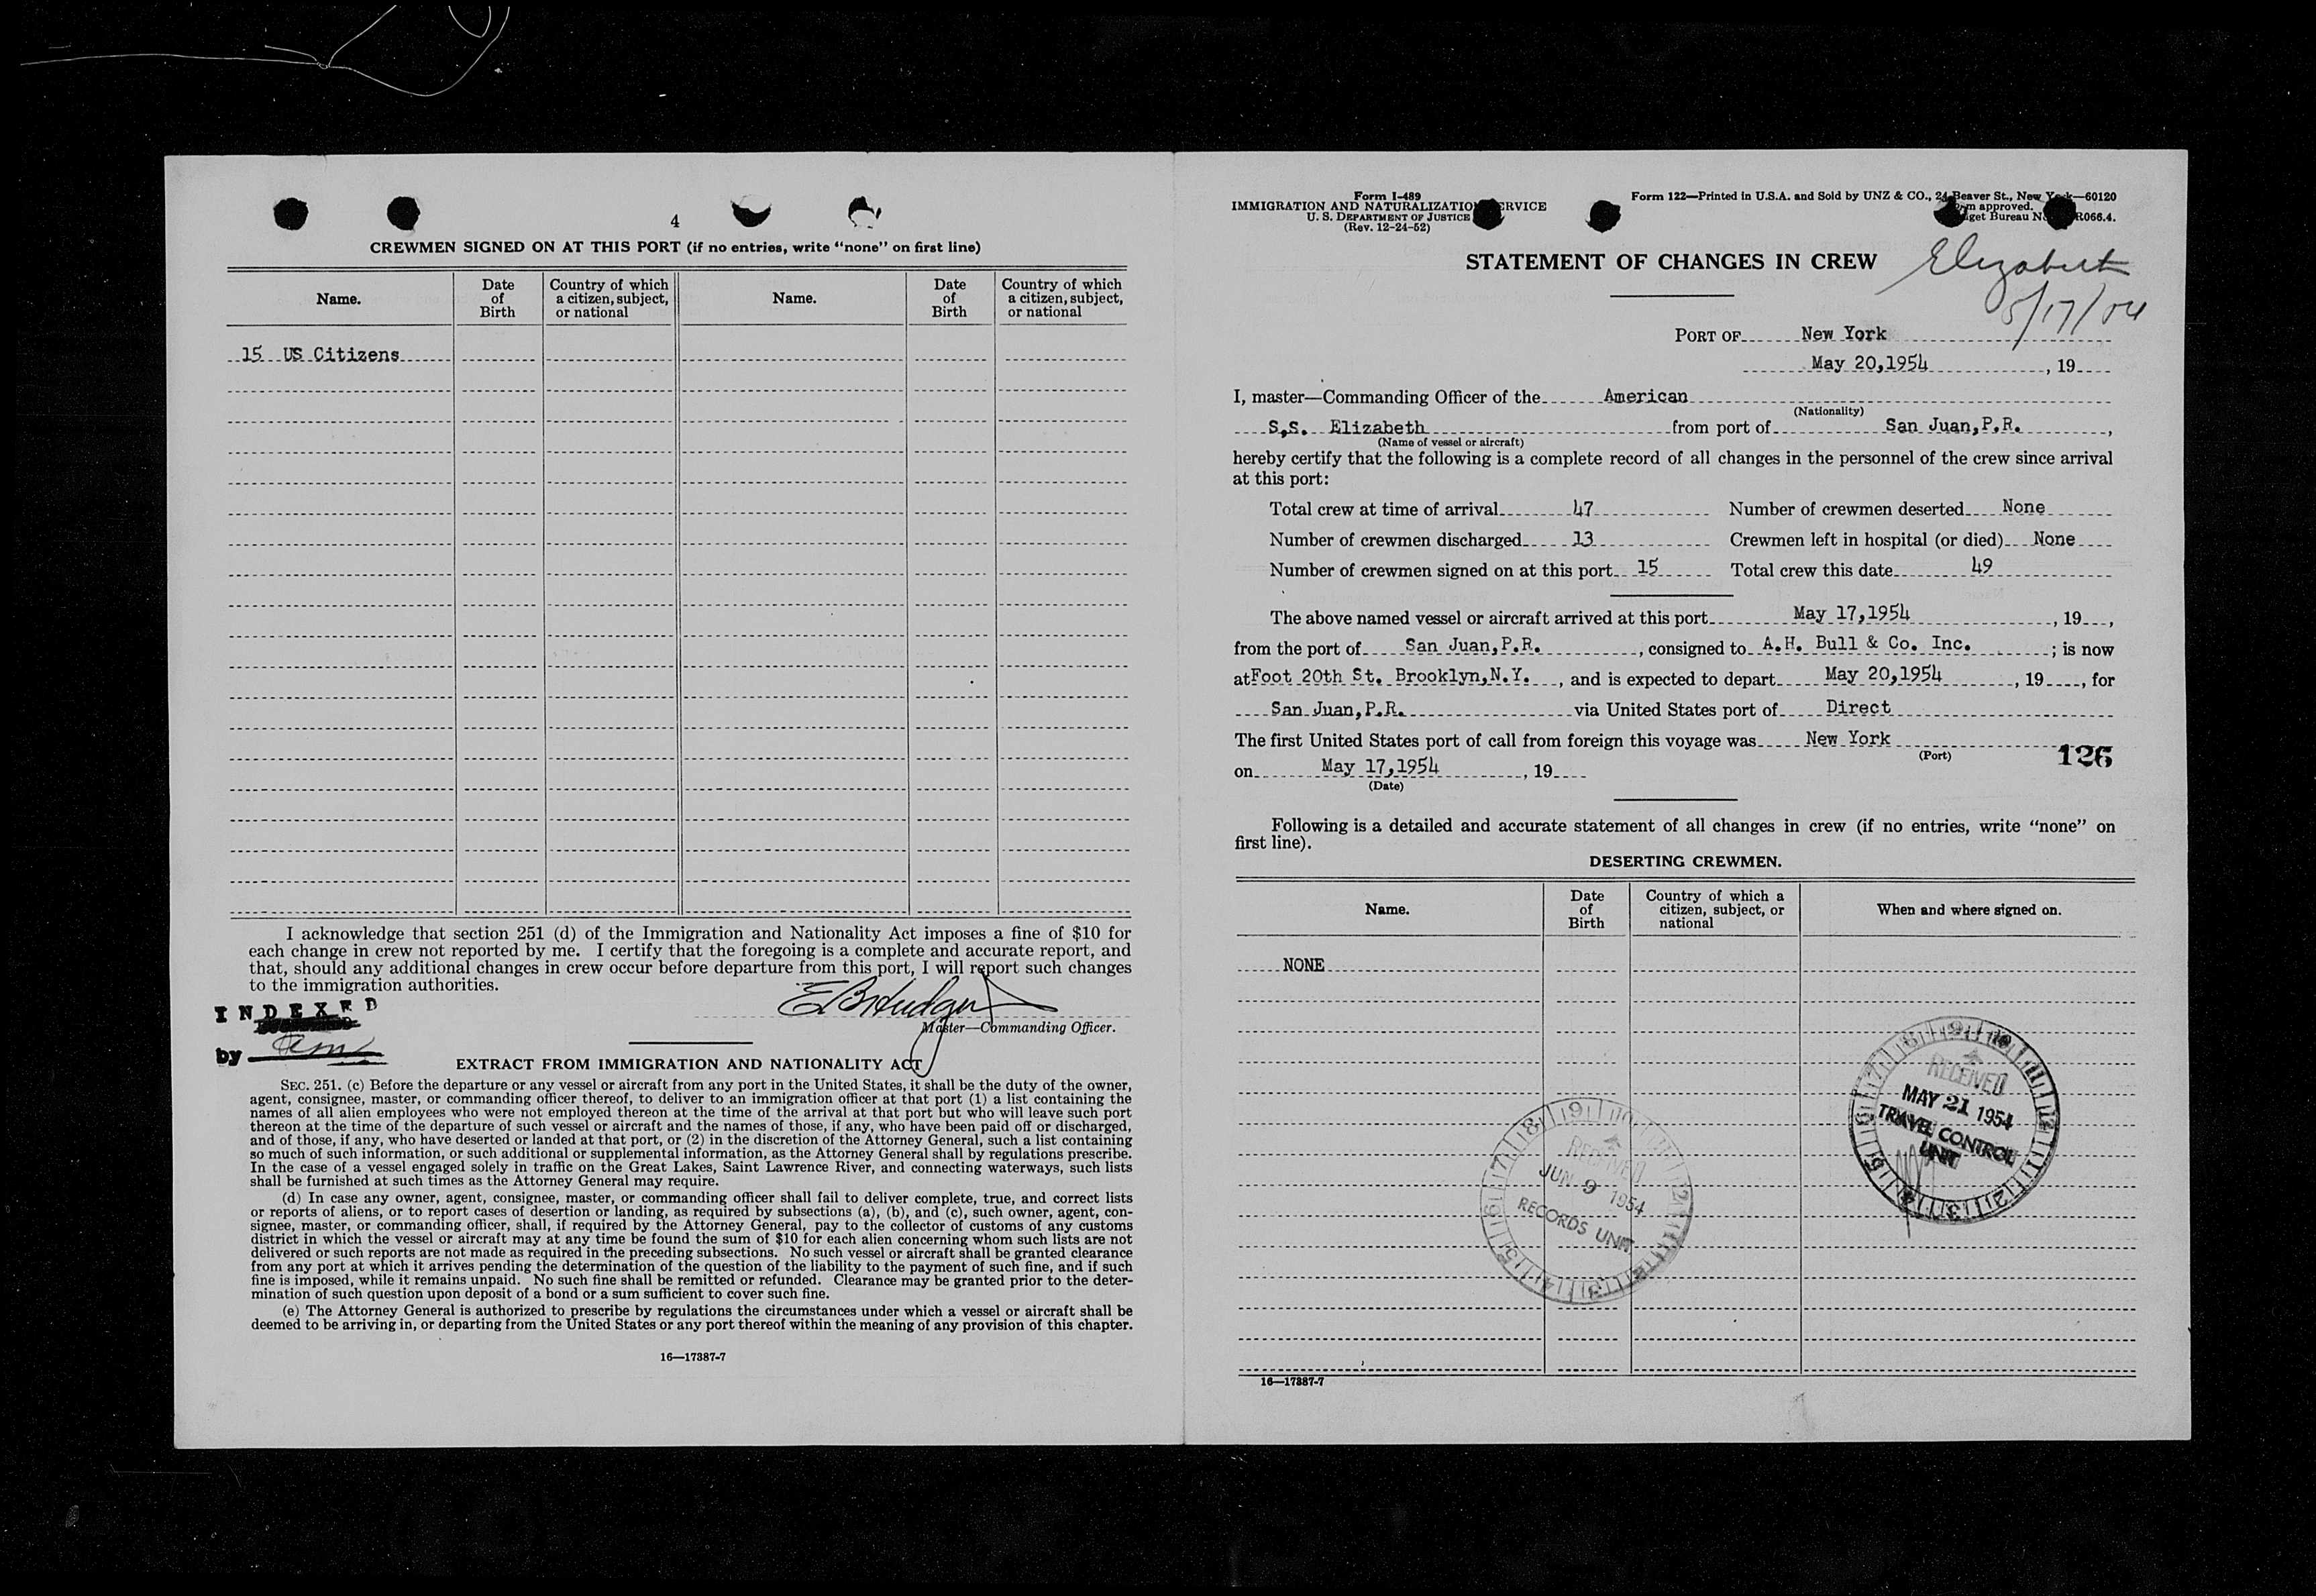 4
CREWMEN SIGNED ON AT THIS PORT (if no entries, write "none" on first line)
Name.
Date of Birth
Country of which a citizen, subject, or national
Name.
Date of Birth
Country of which a citizen, subject, or national
15 US Citizens
I acknowledge that section 251 (d) of the Immigration and Nationality Act imposes a fine of $10 for
each change in crew not reported by me. I certify that the foregoing is a complete and accurate report, and
that, should any additional changes in crew occur before departure from this port, I will report such changes
to the immigration authorities.
INDEXED
by
Master—Commanding Officer.
EXTRACT FROM IMMIGRATION AND NATIONALITY ACT
SEC. 251. (c) Before the departure or any vessel or aircraft from any port in the United States, it shall be the duty of the owner,
agent, consignee, master, or commanding officer thereof, to deliver to an immigration officer at that port (1) a list containing the
names of all alien employees who were not employed thereon at the time of the arrival at that port but who will leave such port
thereon at the time of the departure of such vessel or aircraft and the names of those, if any, who have been paid off or discharged,
and of those, if any, who have deserted or landed at that port, or (2) in the discretion of the Attorney General, such a list containing
so much of such information, or such additional or supplemental information, as the Attorney General shall by regulations prescribe.
In the case of a vessel engaged solely in traffic on the Great Lakes, Saint Lawrence River, and connecting waterways, such lists
shall be furnished at such times as the Attorney General may require.
(d) In case any owner, agent, consignee, master, or commanding officer shall fail to deliver complete, true, and correct lists
or reports of aliens, or to report cases of desertion or landing, as required by subsections (a), (b), and (c), such owner, agent, con-
signee, master, or commanding officer, shall, if required by the Attorney General, pay to the collector of customs of any customs
district in which the vessel or aircraft may at any time be found the sum of $10 for each alien concerning whom such lists are not
delivered or such reports are not made as required in the preceding subsections. No such vessel or aircraft shall be granted clearance
from any port at which it arrives pending the determination of the question of the liability to the payment of such fine, and if such
fine is imposed, while it remains unpaid. No such fine shall be remitted or refunded. Clearance may be granted prior to the deter-
mination of such question upon deposit of a bond or a sum sufficient to cover such fine.
(e) The Attorney General is authorized to prescribe by regulations the circumstances under which a vessel or aircraft shall be
deemed to be arriving in, or departing from the United States or any port thereof within the meaning of any provision of this chapter.
16—17387-7
Form I-489
IMMIGRATION AND NATURALIZATION SERVICE
U. S. DEPARTMENT OF JUSTICE
(Rev. 12-24-52)
Form 122—Printed in U.S.A. and Sold by UNZ & CO., 24 Beaver St., New York—60120
approved.
Bureau R066.4.
STATEMENT OF CHANGES IN CREW
Elizabeth
5/17/54
PORT OF New York
May 20,1954, 19
I, master—Commanding Officer of the American
(Nationality)
S,S. Elizabeth from port of San Juan,P.R.,
(Name of vessel or aircraft)
hereby certify that the following is a complete record of all changes in the personnel of the crew since arrival
at this port:
Total crew at time of arrival 47 Number of crewmen deserted None
Number of crewmen discharged 13 Crewmen left in hospital (or died) None
Number of crewmen signed on at this port 15 Total crew this date 49
The above named vessel or aircraft arrived at this port May 17,1954, 19,
from the port of San Juan,P.R., consigned to A.H. Bull & Co. Inc. ; is now
at Foot 20th St. Brooklyn,N.Y., and is expected to depart May 20,1954, 19, for
San Juan,P.R. via United States port of Direct
The first United States port of call from foreign this voyage was New York
(Port)
126
on May 17,1954, 19
(Date)
Following is a detailed and accurate statement of all changes in crew (if no entries, write "none" on
first line).
DESERTING CREWMEN.
Name.
Date of Birth
Country of which a citizen, subject, or national
When and where signed on.
NONE
RECEIVED
MAY 21 1954
TRAVEL CONTROL
UNIT
RECEIVED
JUN 9 1954
RECORDS UNIT
16—17387-7